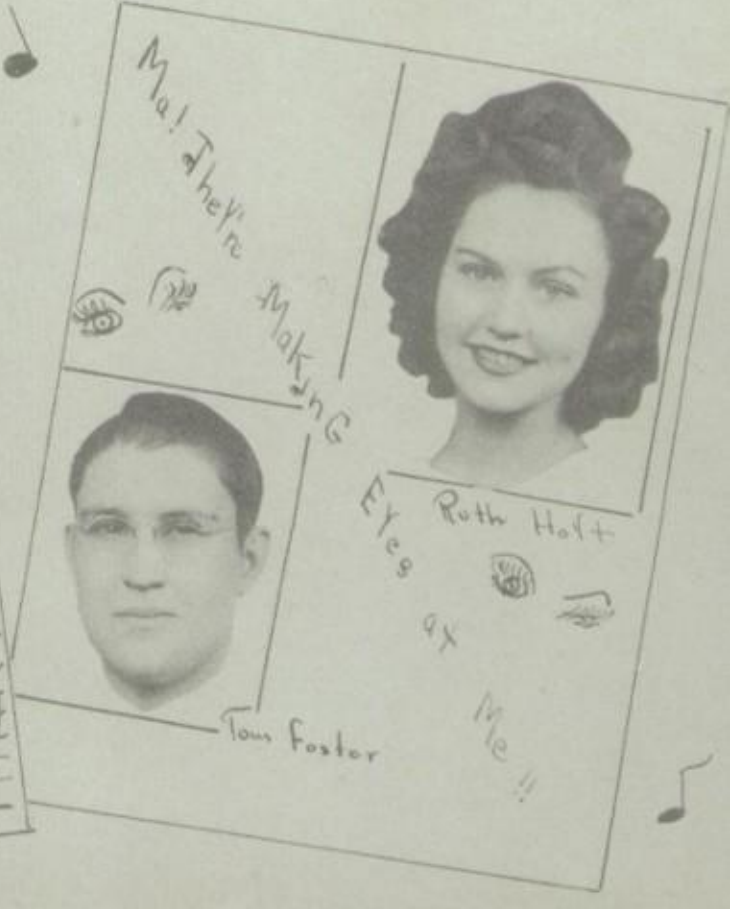 Ma! They're Making Eyes at Me!!
Ruth Hoyt
Tom Foster